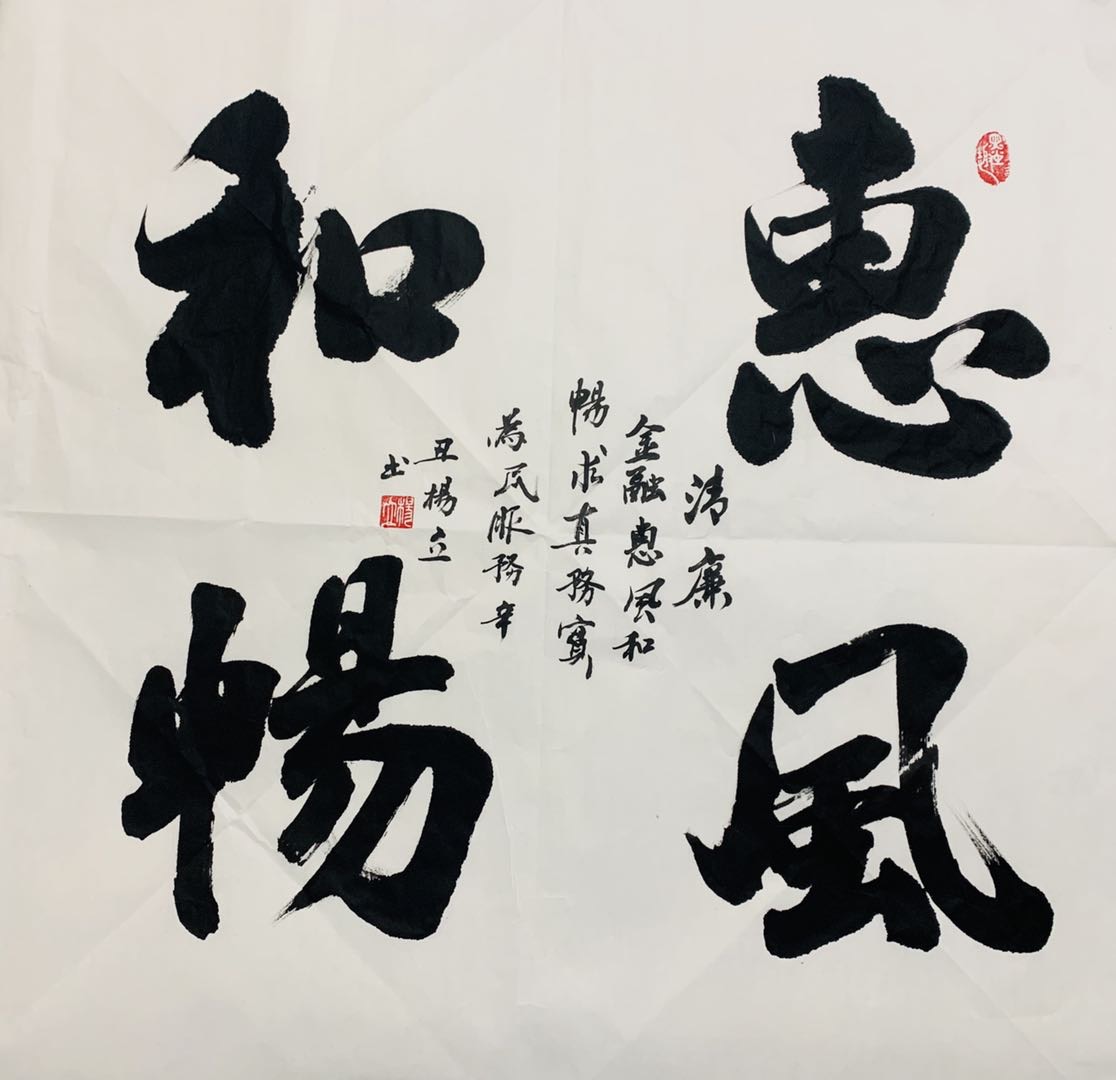 惠風
和暢
清廉
金融惠風和
暢求真務實
為民服務辛
丑楊立
书